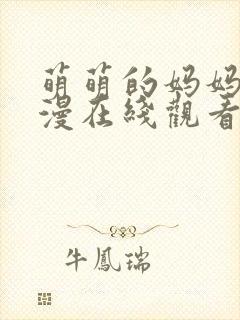 萌萌的妈妈
漫在綫觀看
牛鳳瑞